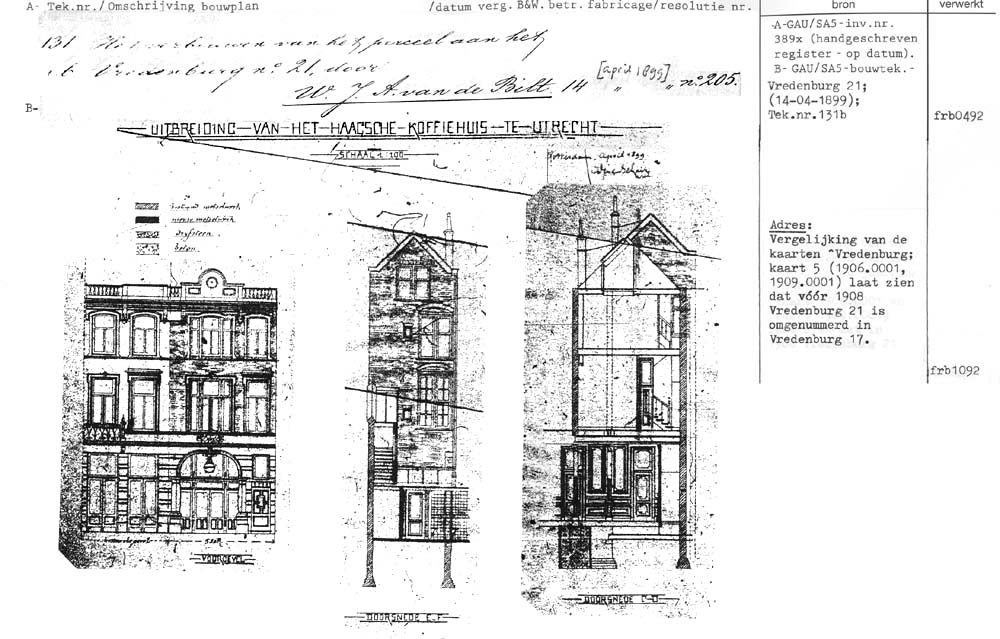 A- Tek.nr./Omschrijving bouwplan /datum verg. B&W. betr. fabricage/resolutie nr. bron verwerkt
131 Het verbouwen van het perceel aan het
Vredenburg no. 21, door
W. J. A. van de Bilt. 14 [april 1899] " " no. 205.
B-
UITBREIDING-VAN-HET-HAAGSCHE-KOFFIEHUIS-TE-UTRECHT
SCHAAL 1:100
Rotterdam, april 1899
bestaand metselwerk
nieuw metselwerk
beton
VOORGEVEL
DOORSNEDE E-F
DOORSNEDE C-D
-A-GAU/SA5-inv.nr.
389x (handgeschreven
register - op datum).
B- GAU/SA5-bouwtek.-
Vredenburg 21;
(14-04-1899);
Tek.nr.131b
frb0492
Adres:
Vergelijking van de
kaarten ^Vredenburg;
kaart 5 (1906.0001,
1909.0001) laat zien
dat vóór 1908
Vredenburg 21 is
omgenummerd in
Vredenburg 17.
frb1092